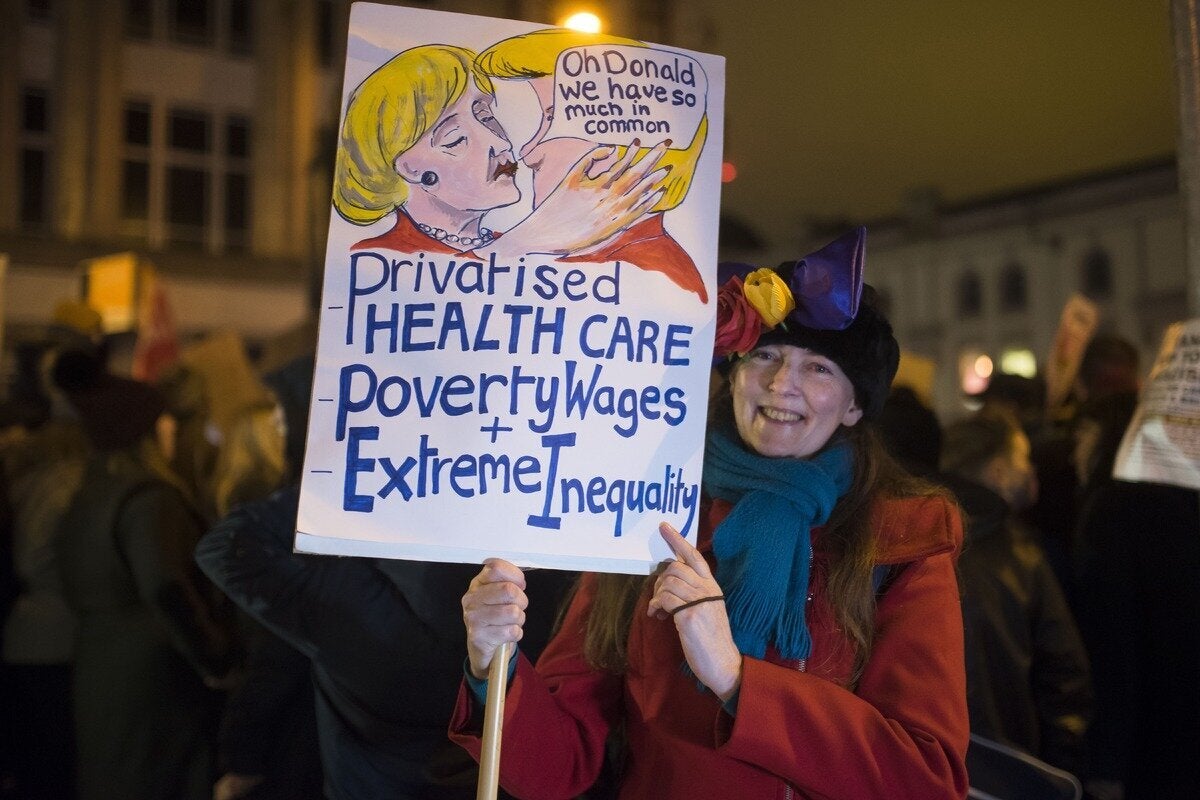 Oh Donald
We have so
much in
common
- Privatised
HEALTH CARE
- Poverty Wages
+
- Extreme Inequality